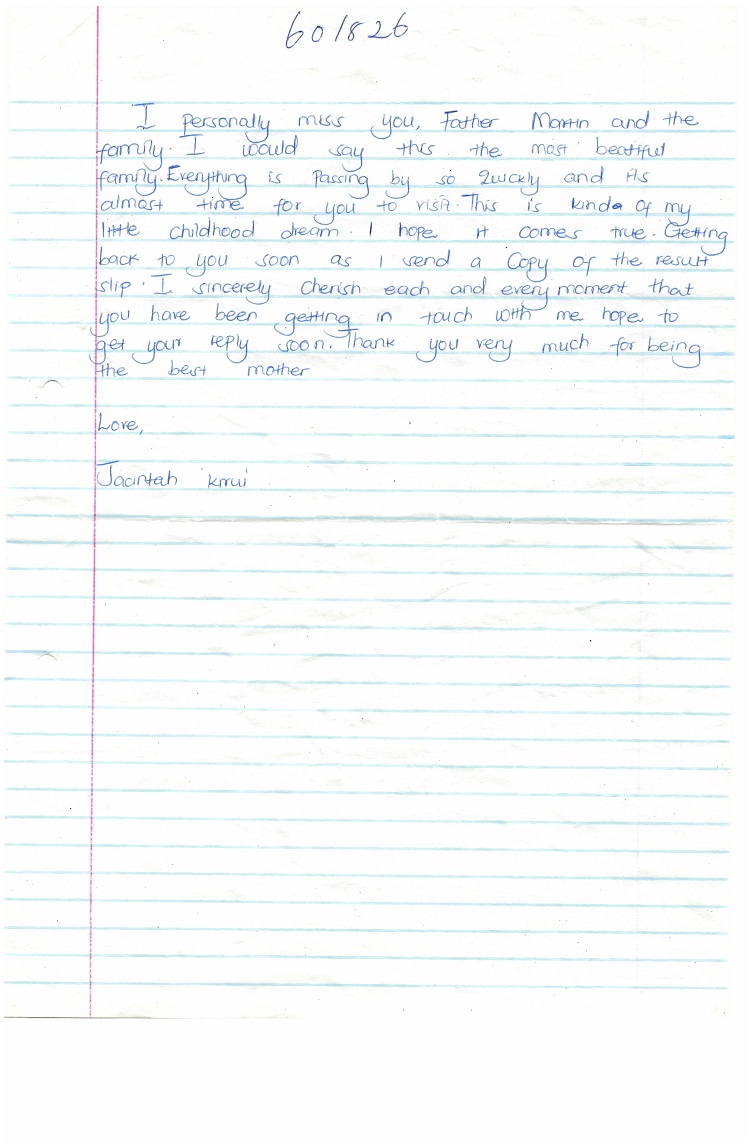 601826
I personally miss you, Father Martin and the
family. I would say this the most beatiful
family. Everything is passing by so quickly and its
almost time for you to visit. This is kinda of my
little childhood dream. I hope it comes true. Getting
back to you soon as I send a copy of the result
slip. I sincerely cherish each and every moment that
you have been getting in touch with me hope to
get your reply soon. Thank you very much for being
the best mother
Love,
Jacintah